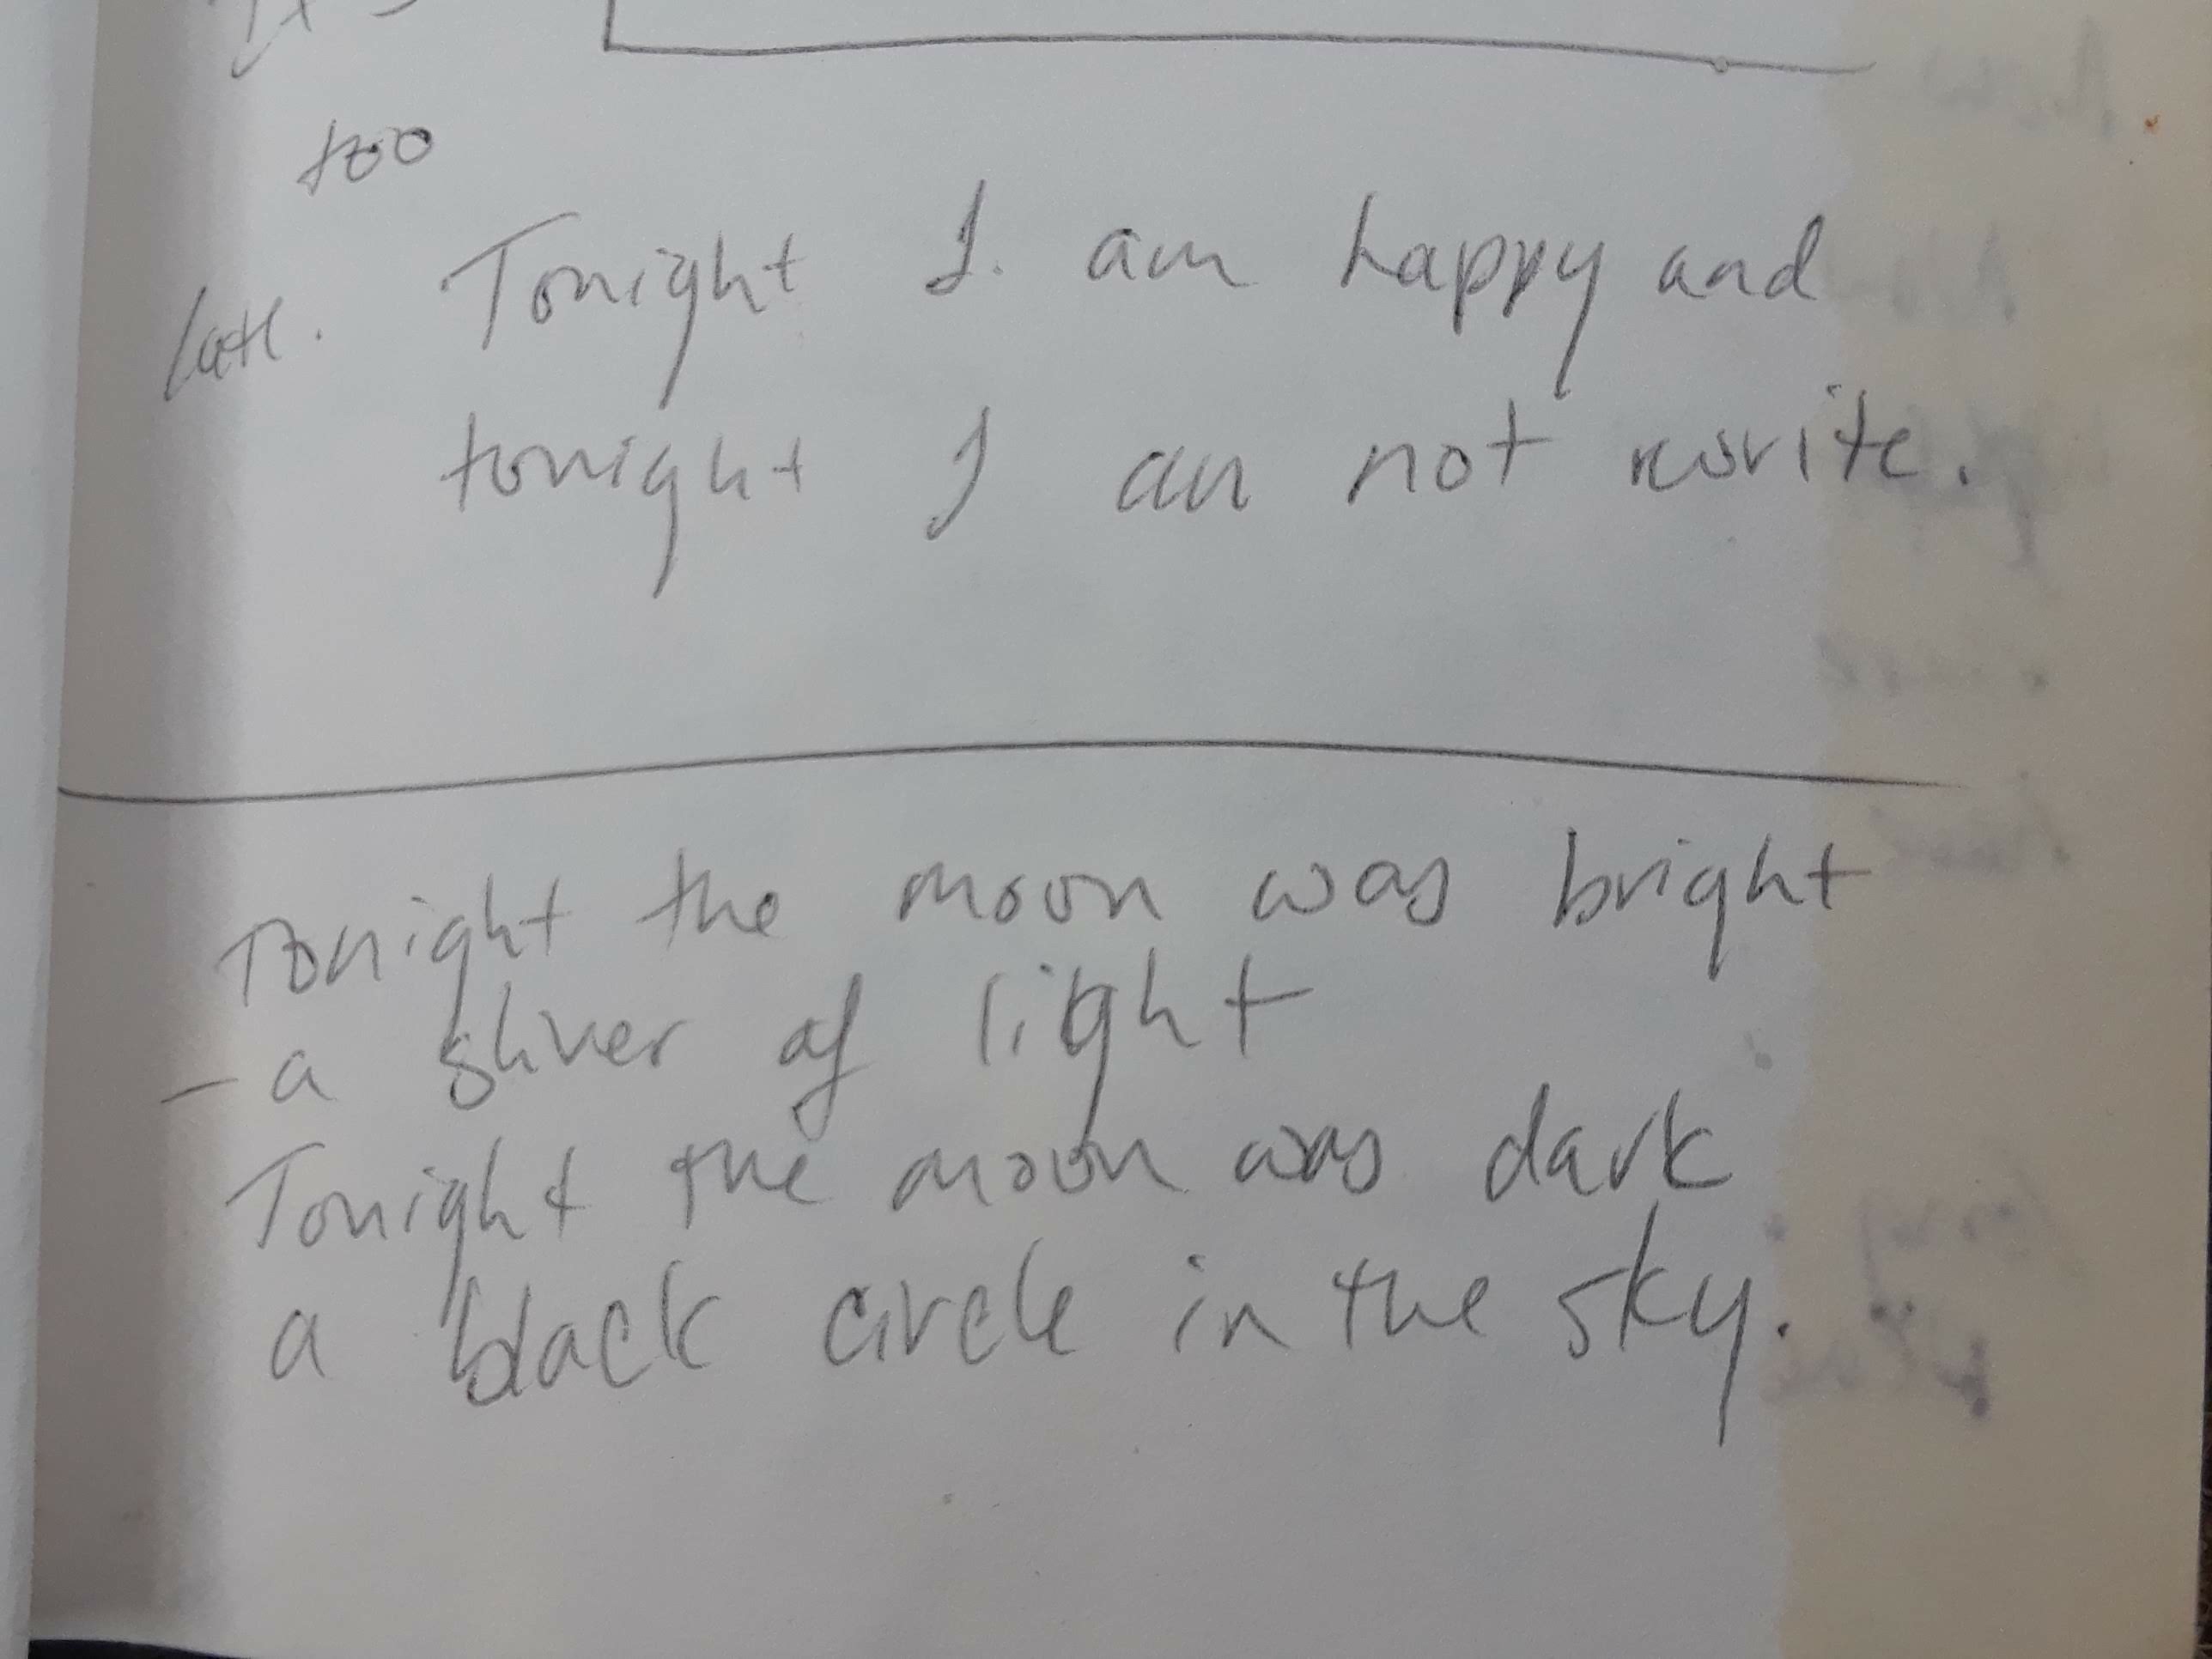 too
late.
Tonight I am happy and
tonight I am not
Tonight the moon was bright
- a sliver of light
Tonight the moon was dark
a black circle in the sky.